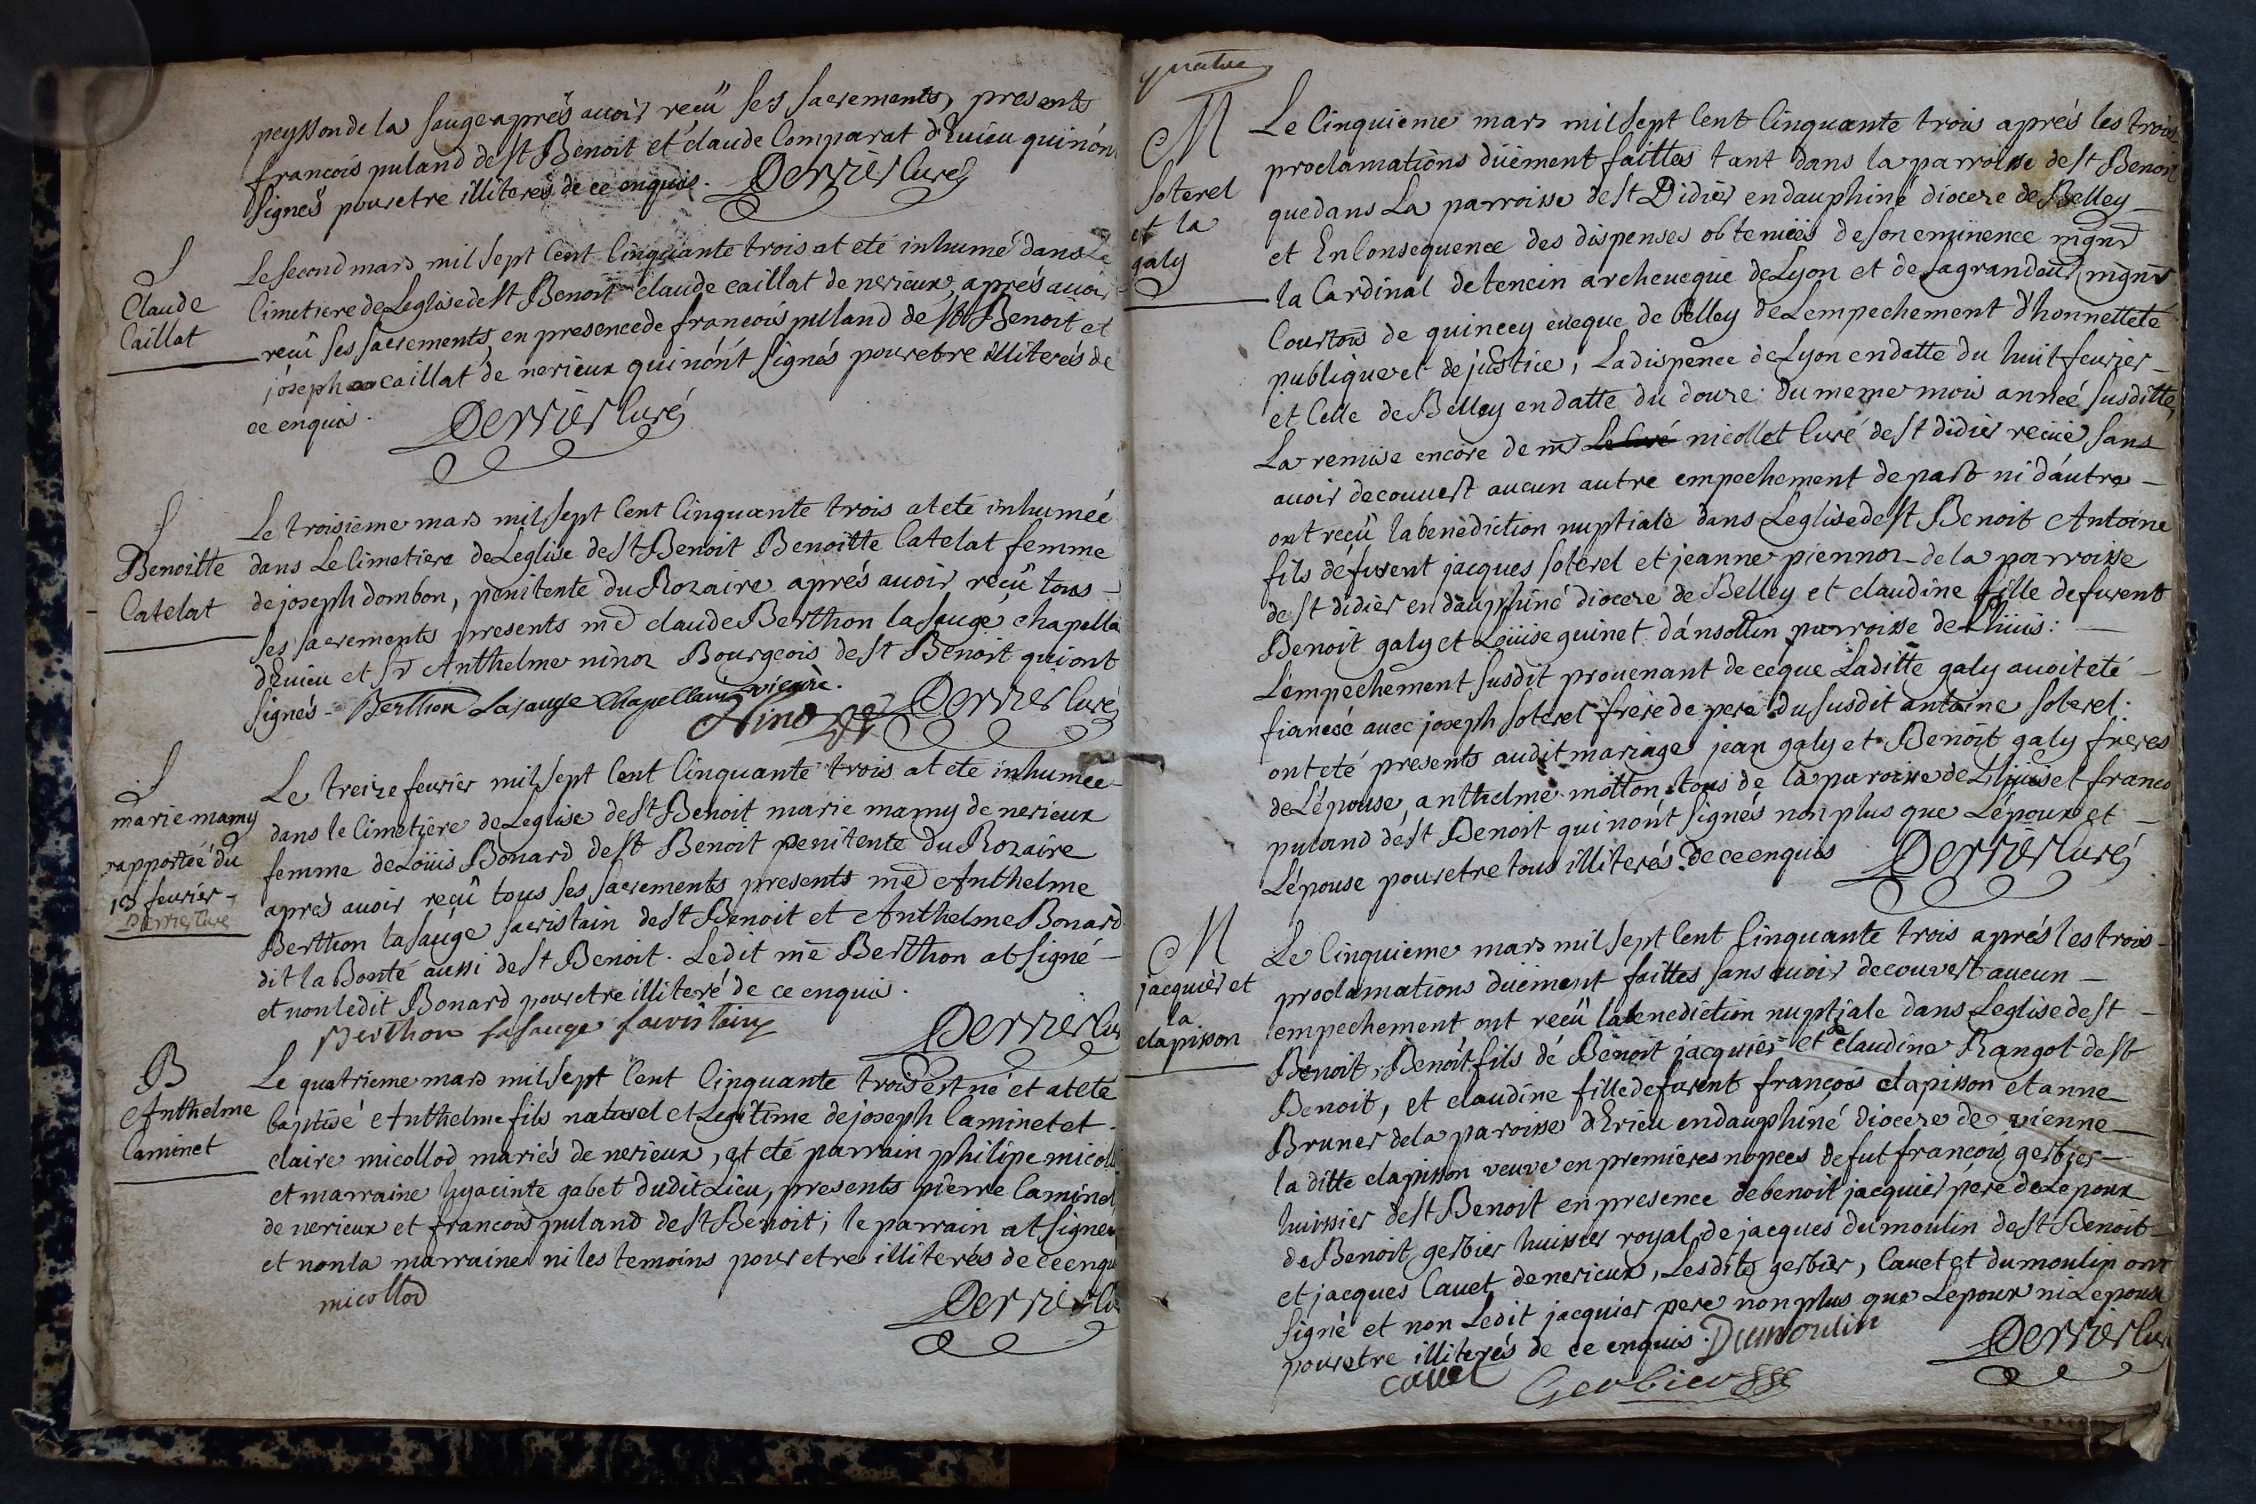 peysson de la sauge aprés avoir reçû ses sacrements, presents
francois puland de st Benoit et claude Comparat d'Evieu qui nón
signés pour etre illiterés de ce enquis. Derrier Curé
S
Claude
Caillat
Le second mars mil sept cent Cinquante trois at eté inhumé dans Le
Cimetiere de Leglise de st Benoit claude caillat de nerieux aprés avoir
reçû ses sacrements en presence de francois puland de st Benoit et
joseph caillat de nerieux qui nónt signés pour etre illiterés de
ce enquis.
Derrier Curé
S
Benoitte
Catelat
Le troisieme mars mil sept Cent Cinquante trois at eté inhumeé
dans Le Cimetiere de Leglise de st Benoit Benoitte Catelat femme
de joseph dombon, penitente du Rozaire aprés avoir reçû tous
ses sacrements presents mre claude Berthon lasauge chapellain
d'Evieu et sr Anthelme ninoz Bourgeois de st Benoit qui ont
signés - Berthon Lasauge Chapellain vicaire.
Ninoz Derrier Curé
S
marie mamy
rapporteé du
13 fevrier
Derrier Curé
Le treize fevrier mil sept Cent Cinquante trois at eté inhumeé
dans le Cimetiere de Leglise de st Benoit marie mamy de nerieux
femme de Loüis Bonard de st Benoit penitente du Rozaire
apres avoir reçû tous ses sacrements presents mre Anthelme
Berthon lasauge sacristain de st Benoit et Anthelme Bonard
dit la Bonté aussi de st Benoit. Ledit mre Berthon at signé
et non ledit Bonard pour etre illiteré de ce enquis.
Berthon Lasauge sacristain
Derrier Cur
B
Anthelme
Caminet
Le quatrieme mars mil sept Cent Cinquante trois est né et at eté
baptisé Anthelme fils naturel et Legitime de joseph Caminet et
claire micollod mariés de nerieux, at eté parrain philipe micoll
et marraine hyacinte gabet dudit Lieu, presents pierre Caminet
de nerieux et francois puland de st Benoit; le parrain at signé
et non la marraine ni les temoins pour etre illiterés de ce enqu
micollod
Derrier Cu
quatre
M
soterel
et la
galy
Le Cinquieme mars mil sept Cent Cinquante trois aprés les trois
proclamations düement faittes tant dans la parroisse de st Benoit
que dans La parroisse de st Didier en dauphiné diocese de Belley
et En Consequence des dispenses obtenües de son eminence mgnr
la Cardinal de tencin archeveque de Lyon et de sa grandeur mgnr
Courtois de quincey eveque de belley de Lempechement d'honnetteté
publique et de justice, La dispence de Lyon en datte du huit fevrier
et Celle de Belley en datte du douze du meme mois anneé susditte,
La remise encore de mr Le Curé nicollet Curé de st didier reciie sans
avoir decouvert aucun autre empechement de part ni d'áutre
ont reçû la benediction nuptiale dans Leglise de st Benoit Antoine
fils défurent jacques soterel et jeanne piennoz de la parroisse
de st didier en dauphiné diocese de Belley et claudine fille defurent
Benoit galy et Loüise guinet d'ánsollin parroisse de Lhüis:
L'empechement susdit provenant de ce que Laditte galy avoit eté
fianceé avec joseph soterel frere de pere du susdit antoine soterel.
ont eté presents audit mariage jean galy et Benoit galy freres
de Lépouse, anthelme motton tous de la paroisse de Lhüis et franco
puland de st Benoit qui nónt signés non plus que Lépoux et
Lépouse pour etre tous illiterés de ce enquis Derrier Curé
M
jacquier et
la
clapisson
Le Cinquieme mars mil sept Cent Cinquante trois aprés les trois
proclamations düement faittes sans avoir decouvert aucun
empechement ont reçû la benediction nuptiale dans Leglise de st
Benoit, Benoit fils dé Benoit jacquier et de claudine Rangot de st
Benoit, et claudine fille defurent françois clapisson et anne
Brunet de la paroisse d'Erieu en dauphiné diocese de vienne
la ditte clapisson veuve en premieres nopces de fut françois gerbier
huissier de st Benoit en presence de benoit jacquier pere de Lepoux
de Benoit gerbier huissier royal de jacques dumoulin de st Benoit
et jacques Cavet de nerieux, Lesdits gerbier, Cavet et dumoulin ont
signé et non Ledit jacquier pere non plus que Lepoux ni Lepouse
pour etre illiterés de ce enquis. Dumoulin
Derrier Cu
cavet Gerbier